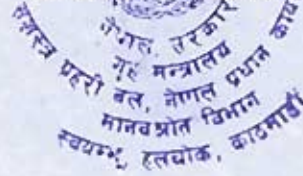 नेपाल सरकार
गृह मन्त्रालय
सशस्त्र प्रहरी बल, नेपाल प्रधान कार्या
मानवश्रोत विभाग
स्वयम्भू, हलचोक, काठमाडौं